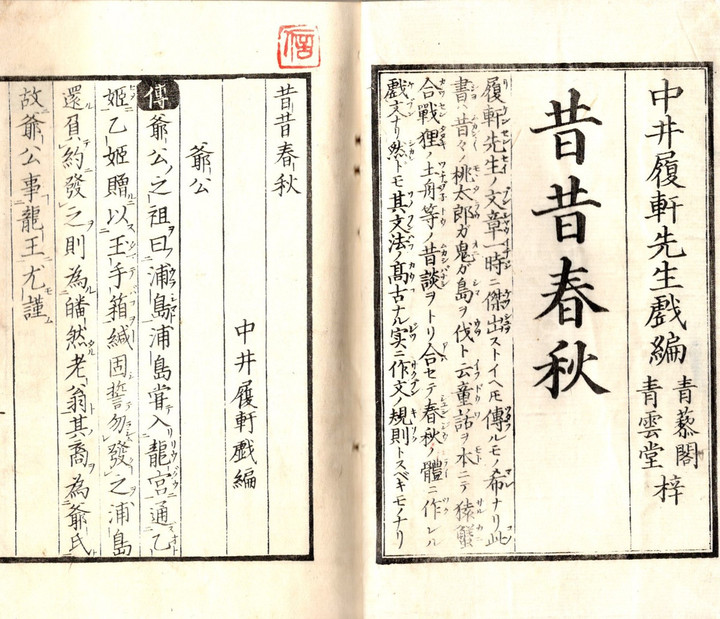 中井履軒先生戯編
青藜閣
青雲堂
梓
昔昔春秋
履軒先生ノ文章一時ニ傑出ストイヘモ傳ルモノ希ナリ此
書ハ昔々ノ桃太郎ガ鬼ガ島ヲ伐ト云童話ヲ本ニテ猿蟹
合戰狸ノ土舟等ノ昔談ヲトリ合セテ春秋ノ體ニ作レル
戲文ナリ然ドモ其文法ノ髙古ナル実ニ作文ノ規則トスベキモノナリ
信
昔昔春秋
中井履軒戯編
爺公
傳 爺公之祖曰浦島浦島甞入龍宮通乙
姬乙姬贈以玉手箱緘固誓勿發之浦島
還負約發之則為皤然老翁其裔為爺氏
故爺公事龍王尤謹